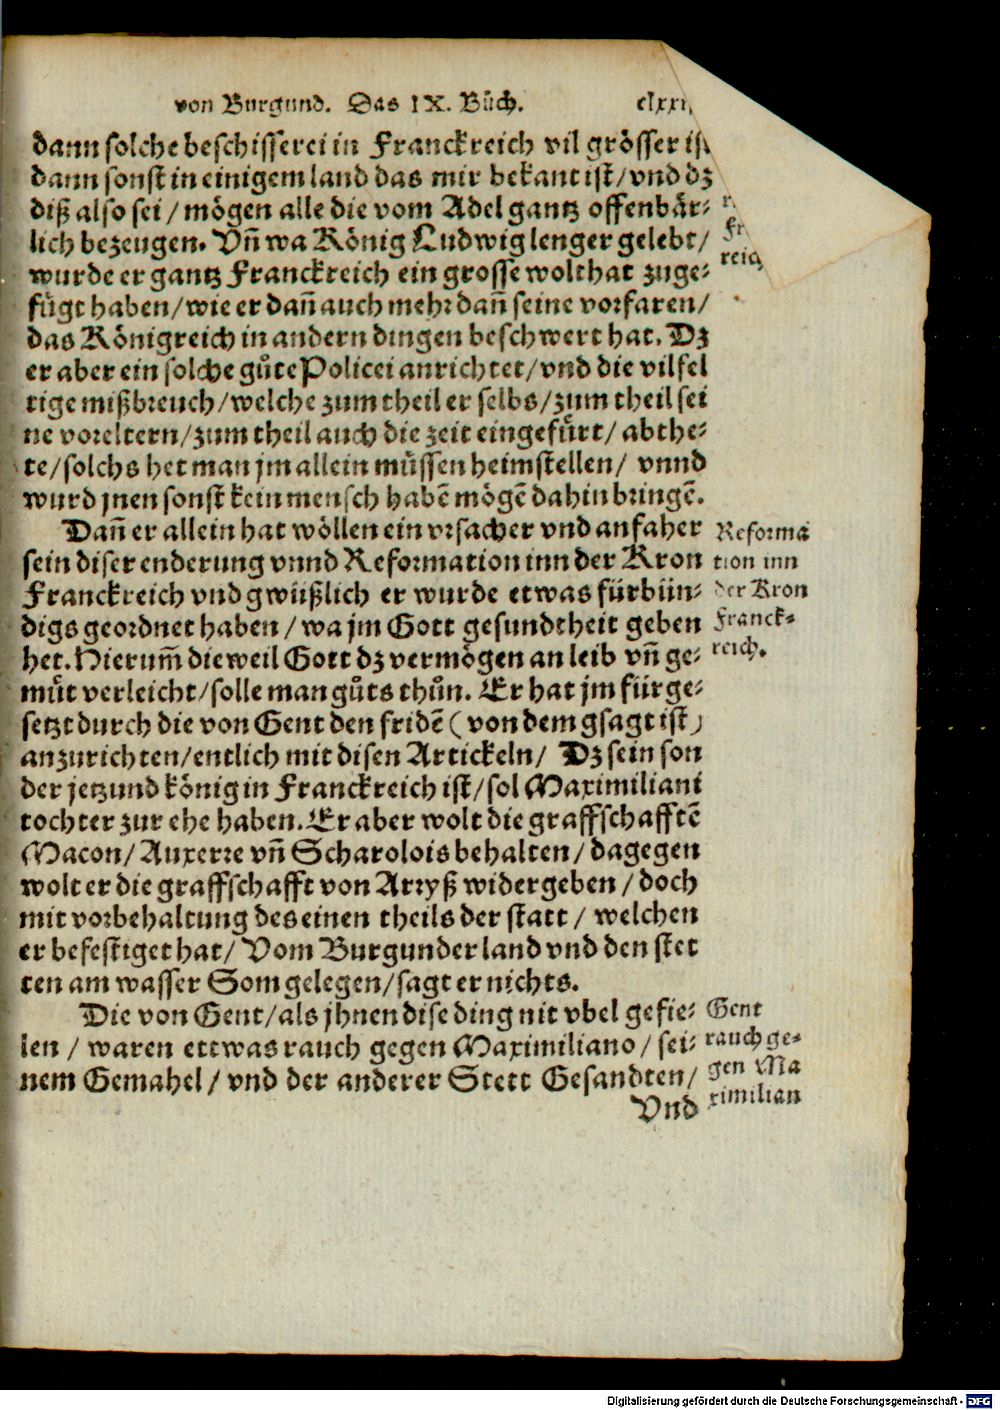 von Burgund. Das IX. Bůch.
dann solche beschisserei in Franckreich vil grösser ist
dann sonst in einigem land das mir bekant ist/ vnd dz
diß also sei / mögen alle die vom Adel gantz offenbår⸗
lich bezeugen. Vñ wa König Ludwig lenger gelebt/
wurde er gantz Franckreich ein grosse wolthat zuge⸗
fůgt haben/ wie er dañ auch mehr dañ seine vorfaren/
das Königreich in andern dingen beschwert hat. Dz
er aber ein solche gůte Policei anrichtet/ vnd die vilfel
tige mißbreuch/ welche zum theil er selbs/ zum theil sei
ne voreltern/ zum theil auch die zeit eingefůrt/ abthe⸗
te/ solchs het man jm allein müssen heimstellen/ vnnd
wurd jnen sonst kein mensch habē mögē dahin bringē.
Dañ er allein hat wöllen ein vrsacher vnd anfaher
sein diser enderung vnnd Reformation inn der Kron
Franckreich vnd gwüßlich er wurde etwas fürbün⸗
digs geordnet haben / wa jm Gott gesundtheit geben
het. Hierum̃ dieweil Gott dz vermögen an leib vñ ge⸗
müt verleicht/ solle man gůts thůn. Er hat jm fürge⸗
setzt durch die von Gent den fridē (von dem gsagt ist)
anzurichten/ entlich mit disen Artickeln/ Dz sein son
der jetzund könig in Franckreich ist/ sol Maximiliani
tochter zur ehe haben. Er aber wolt die graffschafftē
Macon/ Auxerre vñ Scharolois behalten/ dagegen
wolt er die graffschafft von Arryß widergeben / doch
mit vorbehaltung des einen theils der statt / welchen
er befestiget hat/ Vom Burgunder land vnd den stet
ten am wasser Som gelegen/ sagt er nichts.
Die von Gent/ als jhnen dise ding nit vbel gefie⸗
len / waren ettwas rauch gegen Maximiliano/ sei⸗
nem Gemahel/ vnd der anderer Stett Gesandten/
Vnd
reich
Reforma
tion inn
der Kron
Franck⸗
reich.
Gent
rauch ge⸗
gen Ma
ximilian
Digitalisierung gefördert durch die Deutsche Forschungsgemeinschaft - DFG